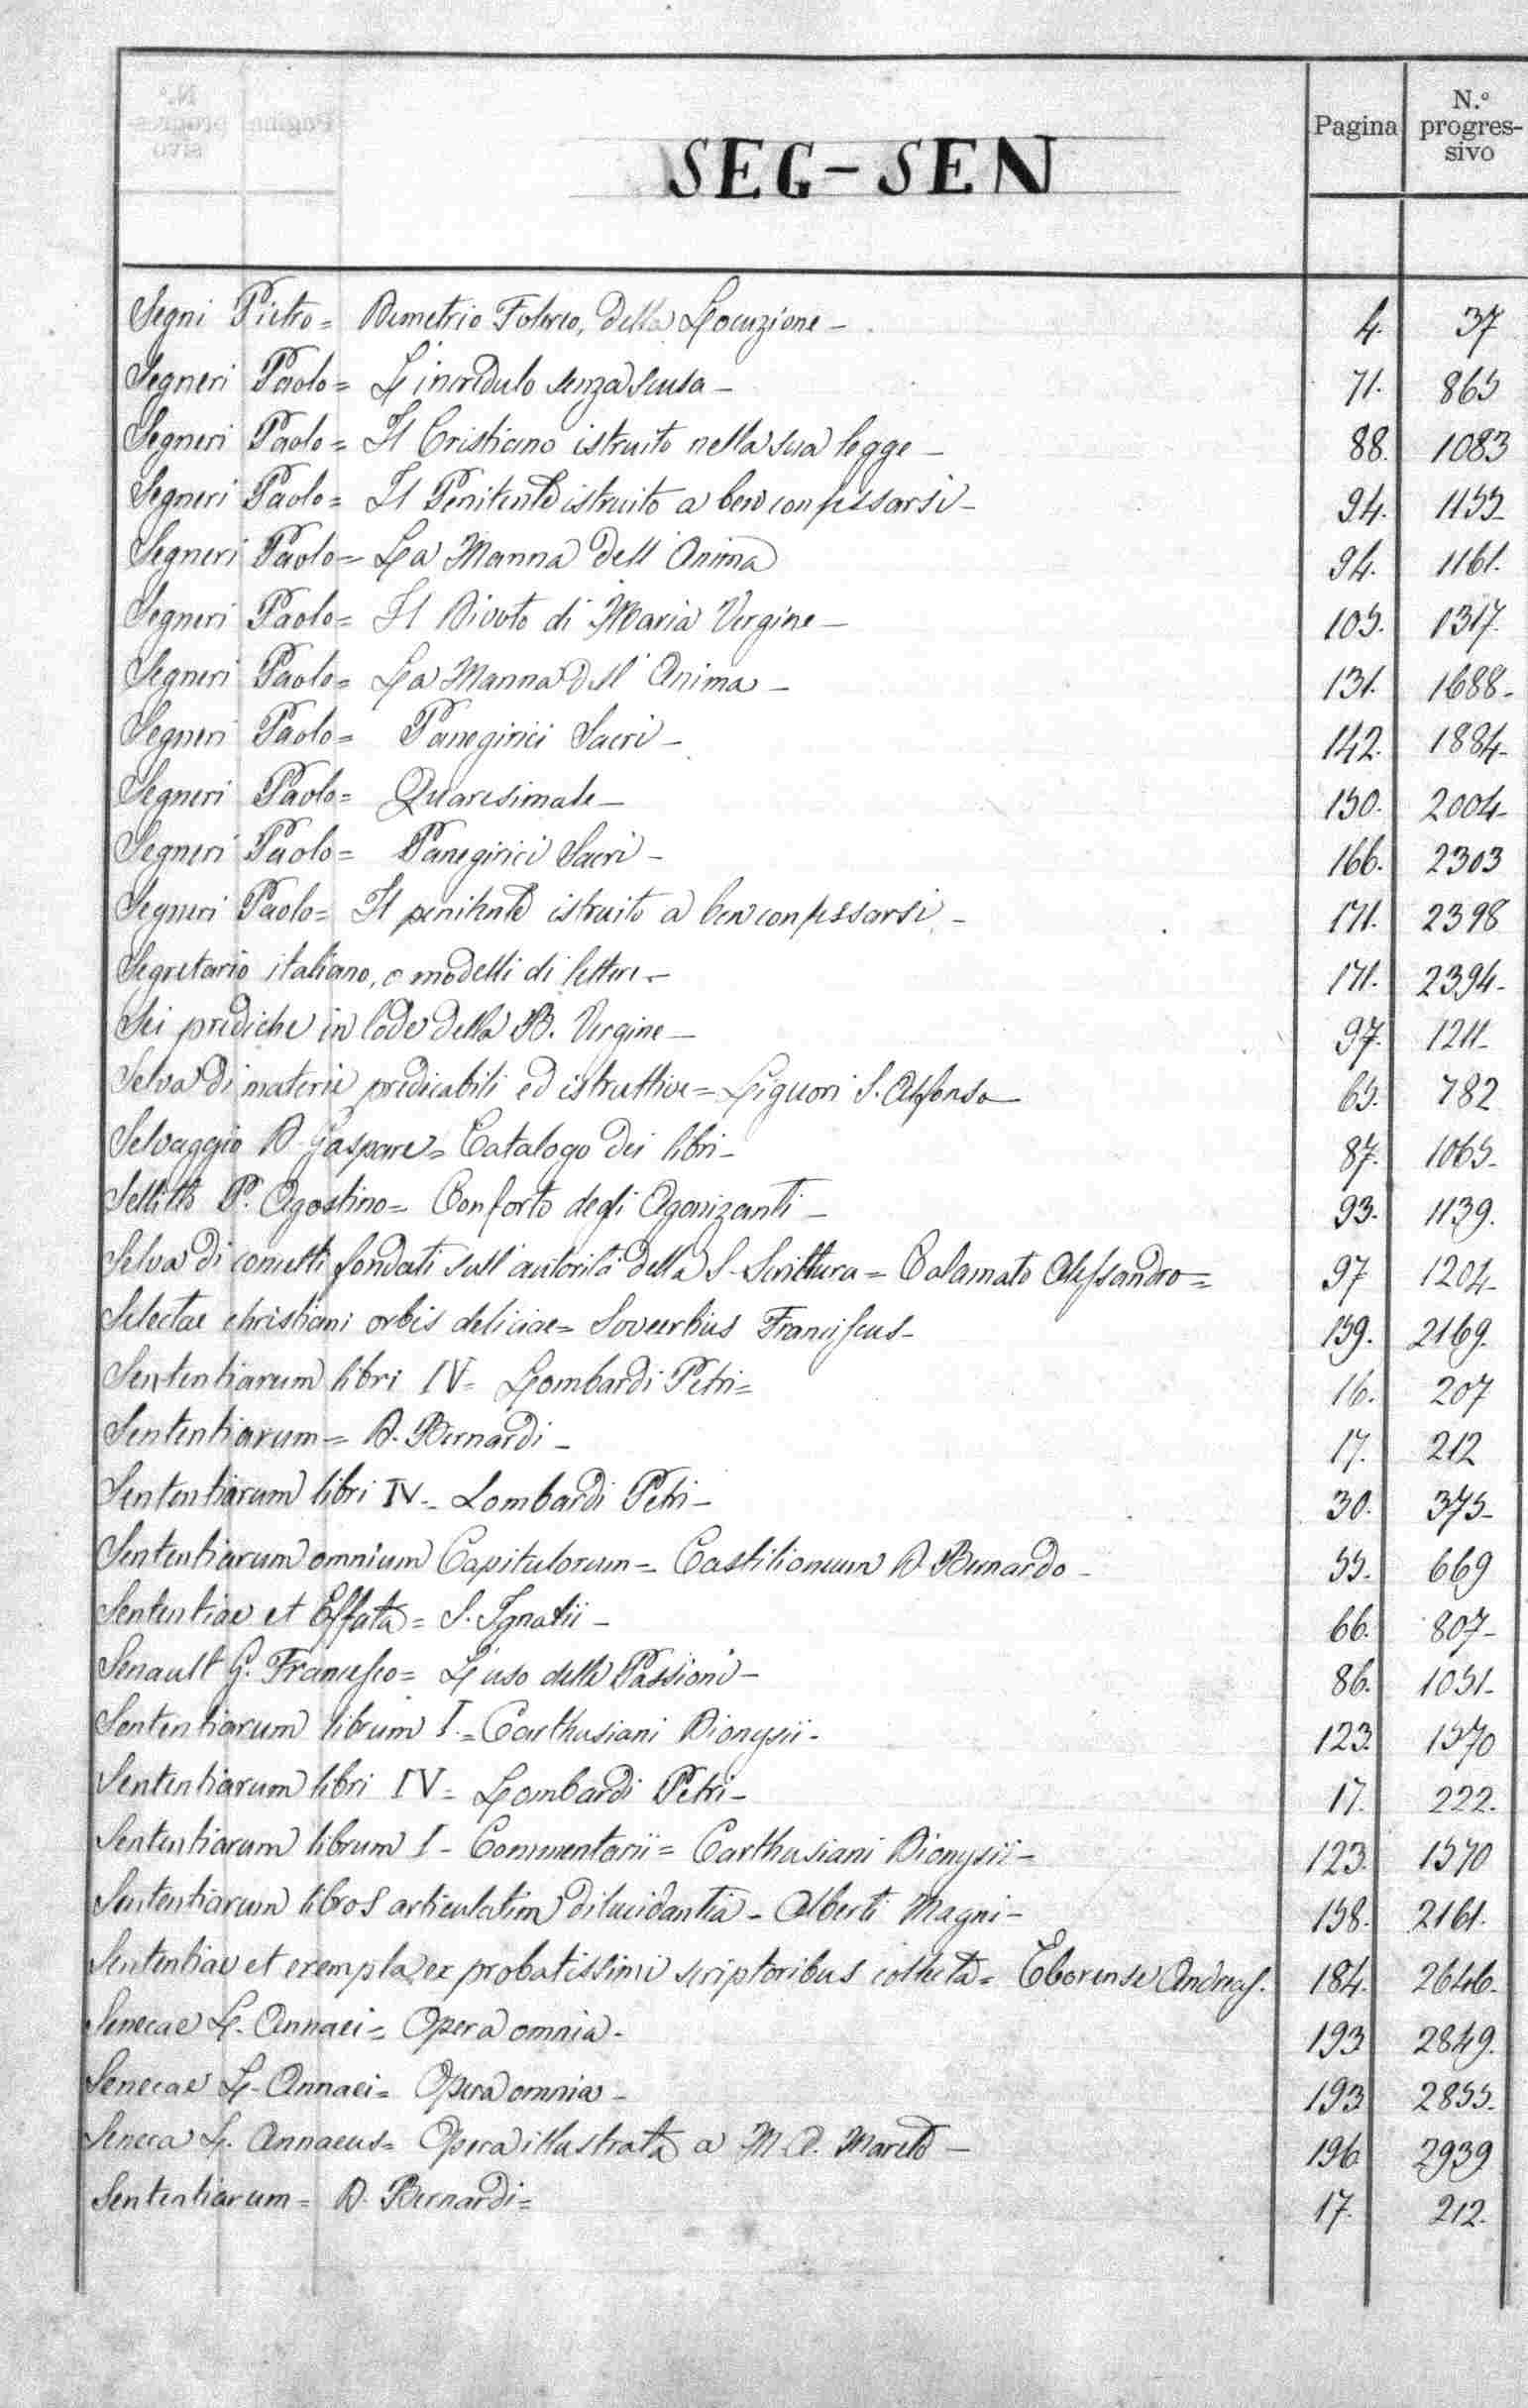 Pagina
N.º progres-
sivo
SEG-SEN
Segni Pietro = Demetrio Falereo, della Locuzione - 4. 37
Segneri Paolo = L'incredulo senza scusa - 71. 865
Segneri Paolo = Il Cristiano istruito nella sua legge - 88. 1083
Segneri Paolo = Il Penitente istruito a ben confessarsi - 94. 1155
Segneri Paolo = La Manna dell'Anima 94. 1161.
Segneri Paolo = Il Divoto di Maria Vergine - 105. 1317.
Segneri Paolo = La Manna dell'Anima - 131. 1688-
Segneri Paolo = Panegirici Sacri - 142. 1884-
Segneri Paolo = Quaresimale - 150. 2004-
Segneri Paolo = Panegirici Sacri - 166. 2303
Segneri Paolo = Il penitente istruito a ben confessarsi - 171. 2398
Segretario italiano, o modelli di lettere - 171. 2394-
Sei prediche in lode della B. Vergine - 97. 1211-
Selva di materie predicabili ed istruttive = Liguori S. Alfonso - 65. 782
Selvaggio D. Gaspare = Catalogo dei libri - 87. 1065-
Sellitto P. Agostino = Conforto degli Agonizanti - 93. 1139.
Selva di concetti fondati sull'autorità della S. Scrittura = Calamato Alessandro = 97 1204-
Selectae christiani orbis deliciae = Sweertius Franciscus - 159. 2169.
Sententiarum libri IV = Lombardi Petri = 16. 207
Sententiarum = D. Bernardi - 17. 212
Sententiarum libri IV - Lombardi Petri - 30. 375-
Sententiarum omnium Capitulorum = D. Bernardo - 55. 669
Sententiae et Effata = S. Ignatii - 66. 807-
Senault G. Francesco = L'uso delle Passioni - 86. 1051-
Sententiarum librum I. = Carthusiani Dionysii - 123. 1570
Sententiarum libri IV = Lombardi Petri - 17. 222.
Sententiarum librum I - Commentarii = Carthusiani Dionysii - 123. 1570
Sententiarum libros articulatim dilucidantia - Alberti Magni - 158. 2161.
Sententiae et exempla, ex probatissimi scriptoribus collecta = Eborense Andreas. 184. 2646.
Senecae L. Annaei = Opera omnia - 193 2849.
Senecae L. Annaei = Opera omnia - 193 2855.
Seneca L. Annaeus = Opera illustrata a M. A. Mureto - 196 2939
Sententiarum = D. Bernardi = 17. 212.